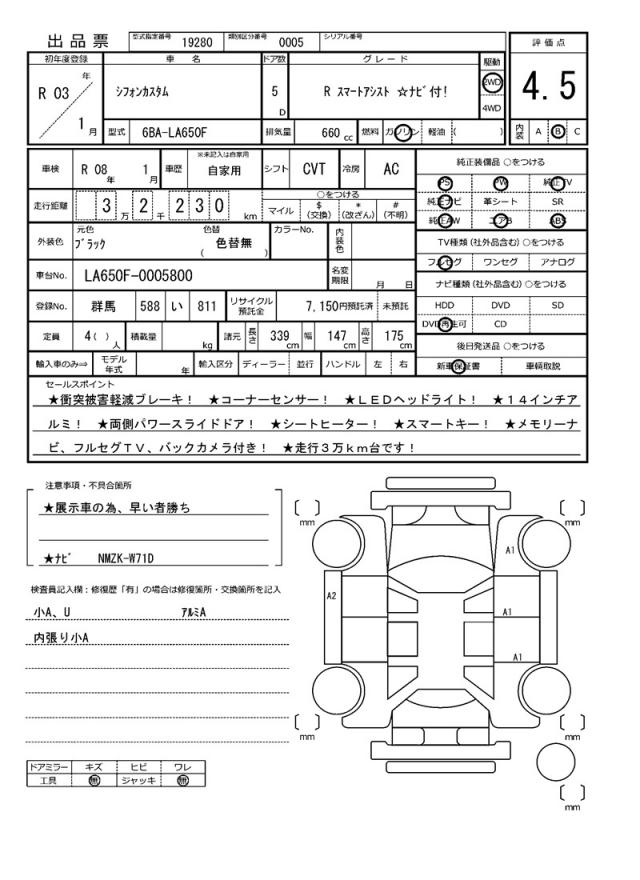 出品票 型式指定番号 19280 類別区分番号 0005 シリアル番号
評価点
4.5
内装 A B C
初年度登録 車名 ドア数 グレード 駆動
R 03 年 1 月
シフォンカスタム 5 D R スマートアシスト ☆ナビ付! 2WD 4WD
型式 6BA-LA650F 排気量 660 cc 燃料 ガソリン 軽油 ( )
車検 R 08 年 1 月 車歴 ※未記入は自家用 自家用 シフト CVT 冷房 AC
走行距離 3 万 2 千 2 3 0 km
○をつける
マイル $ (交換) * (改ざん) # (不明)
外装色 元色 ブラック 色替 色替無 ( ) カラーNo. 内装色
車台No. LA650F-0005800 名変期限 月 日
登録No. 群馬 588 い 811 リサイクル預託金 7,150円預託済 未預託
定員 4( ) 人 積載量 kg 諸元 長さ 339 cm 幅 147 cm 高さ 175 cm
輸入車のみ⇒ モデル年式 年 輸入区分 ディーラー 並行 ハンドル 左 右
純正装備品 ○をつける
PS PW 純正TV
純正ナビ 革シート SR
純正AW エアB ABS
TV種類(社外品含む) ○をつける
フルセグ ワンセグ アナログ
ナビ種類(社外品含む) ○をつける
HDD DVD SD
DVD再生可 CD
後日発送品 ○をつける
新車保証書 車輌取説
セールスポイント
★衝突被害軽減ブレーキ! ★コーナーセンサー! ★LEDヘッドライト! ★14インチア
ルミ! ★両側パワースライドドア! ★シートヒーター! ★スマートキー! ★メモリーナ
ビ、フルセグTV、バックカメラ付き! ★走行3万km台です!
注意事項・不具合箇所
★展示車の為、早い者勝ち
★ナビ NMZK-W71D
検査員記入欄:修復歴「有」の場合は修復箇所・交換箇所を記入
小A、U アルミA
内張り小A
ドアミラー キズ ヒビ ワレ
工具 無 ジャッキ 無
[ ] mm
[ ] mm
A1
A2
A1
A1
[ ] mm
[ ] mm
[ ] mm